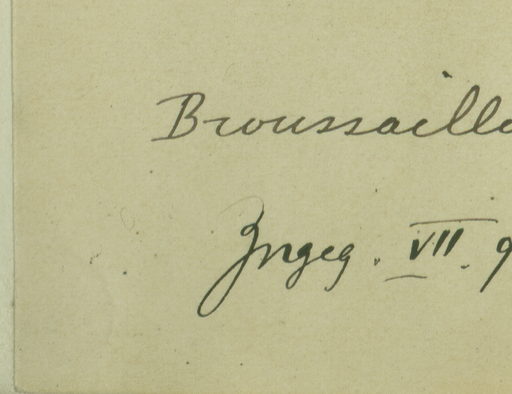 Broussaill
Ingeg. VII. 9